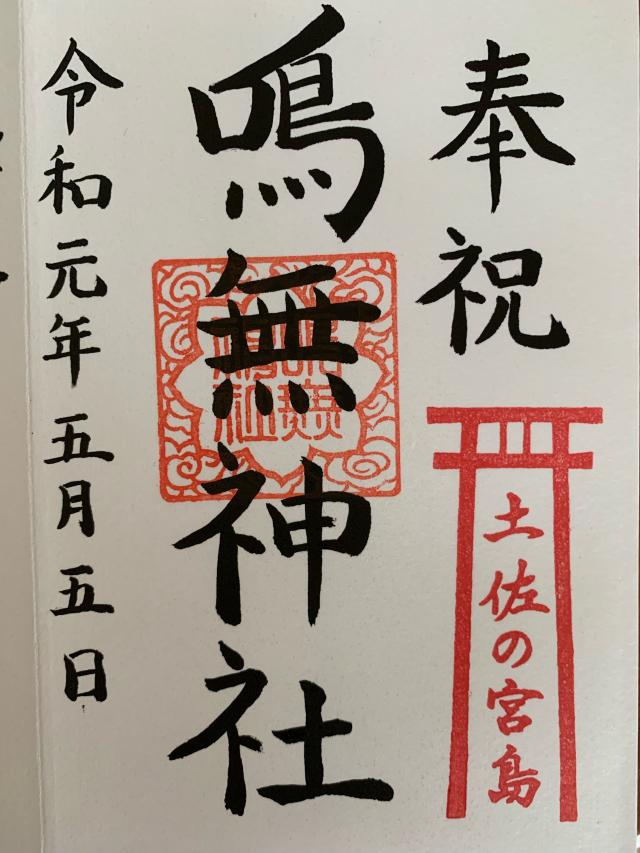 奉祝
土佐の宮島
鳴無神社
令和元年五月五日